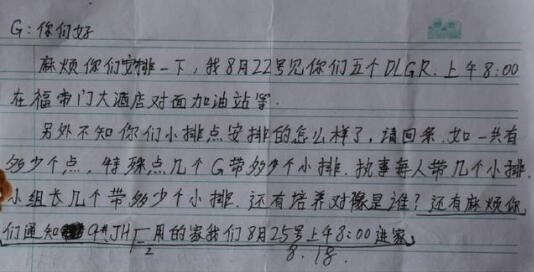 G:你们好
麻烦你们安排一下，我8月22号见你们五个DLGR.上午8:00
在福帝门大酒店对面加油站等.
另外不知你们小排点安排的怎么样了，请回条.如一共有
多少个点，特殊点几个G带多少个小排.执事每人带几个小排.
小组长几个带多少个小排.还有培养对像是谁?还有麻烦你
们通知 JH 用的家我们8月25号上午8:00进家.
8.18.